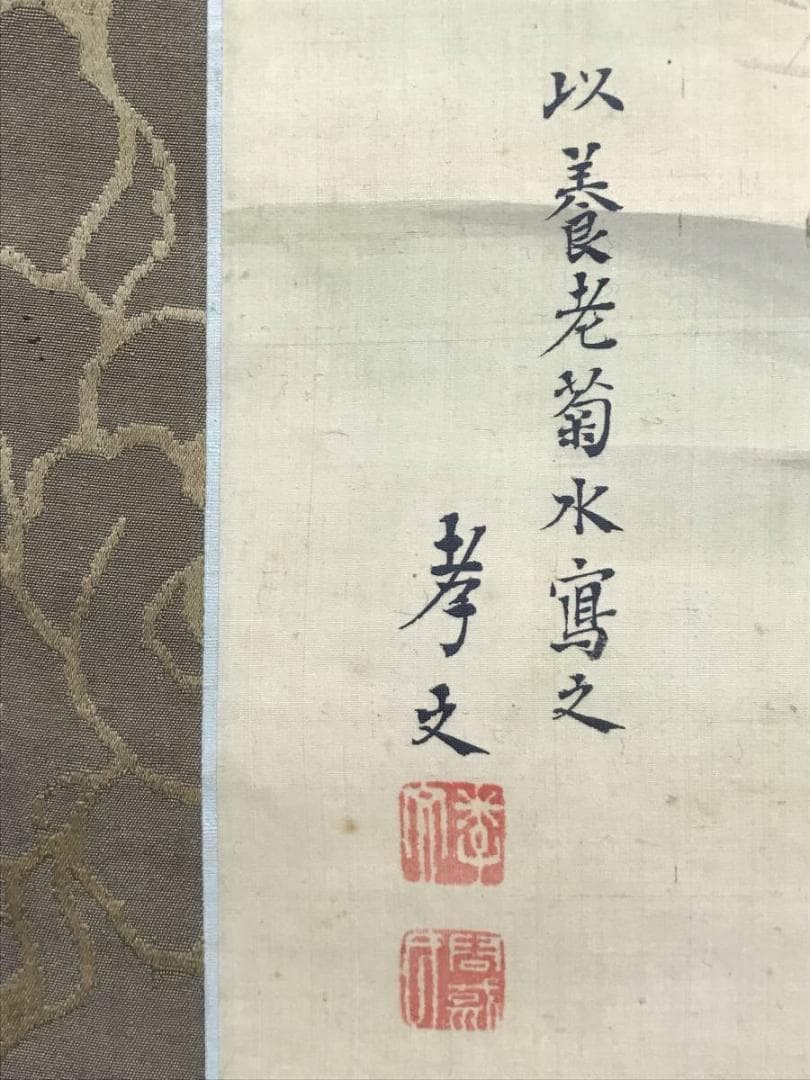 以養老菊水寫之
孝文
孝文